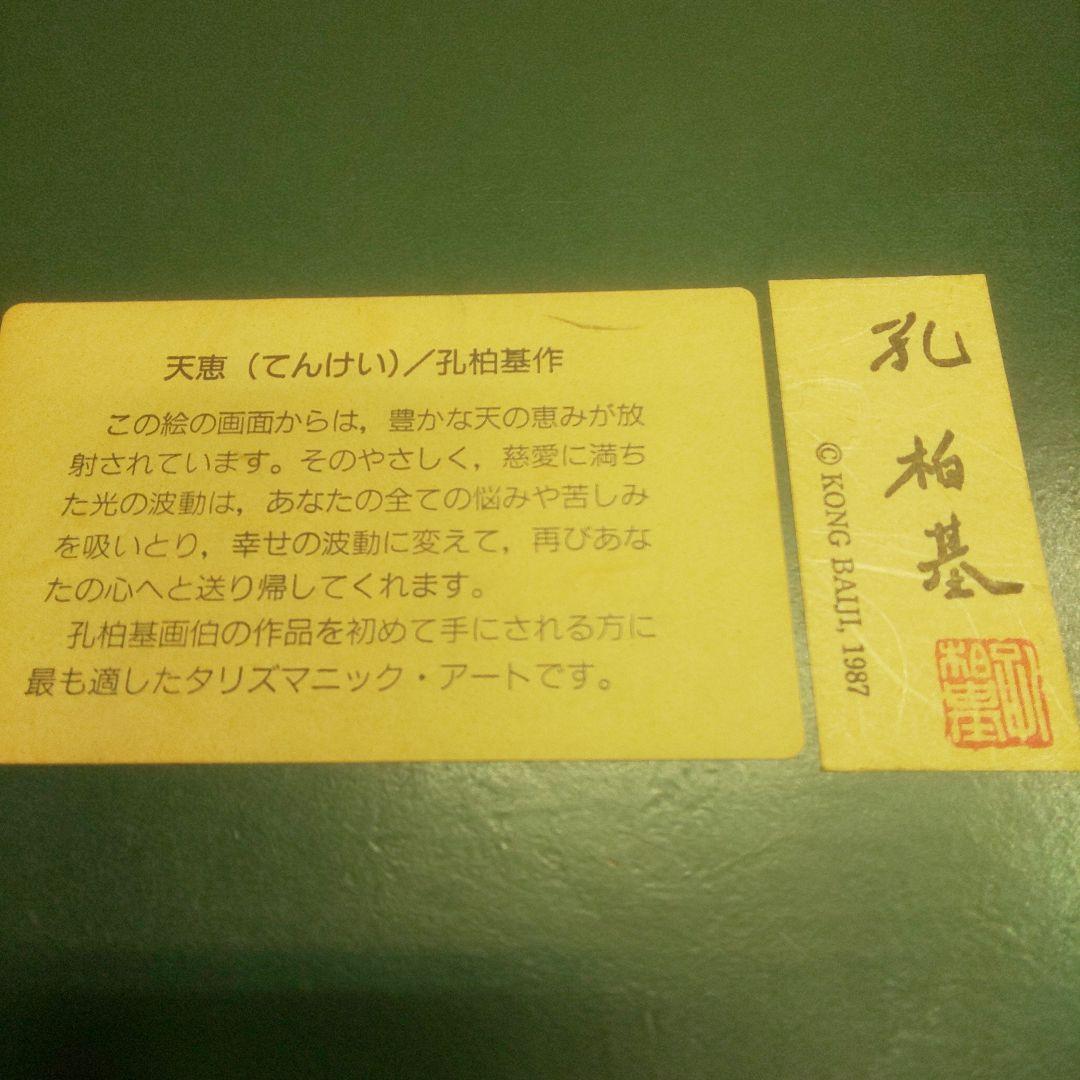 天恵（てんけい）／孔柏基作
この絵の画面からは，豊かな天の恵みが放
射されています。そのやさしく，慈愛に満ち
た光の波動は，あなたの全ての悩みや苦しみ
を吸いとり，幸せの波動に変えて，再びあな
たの心へと送り帰してくれます。
孔柏基画伯の作品を初めて手にされる方に
最も適したタリズマニック・アートです。
孔柏基
© KONG BAIJI, 1987